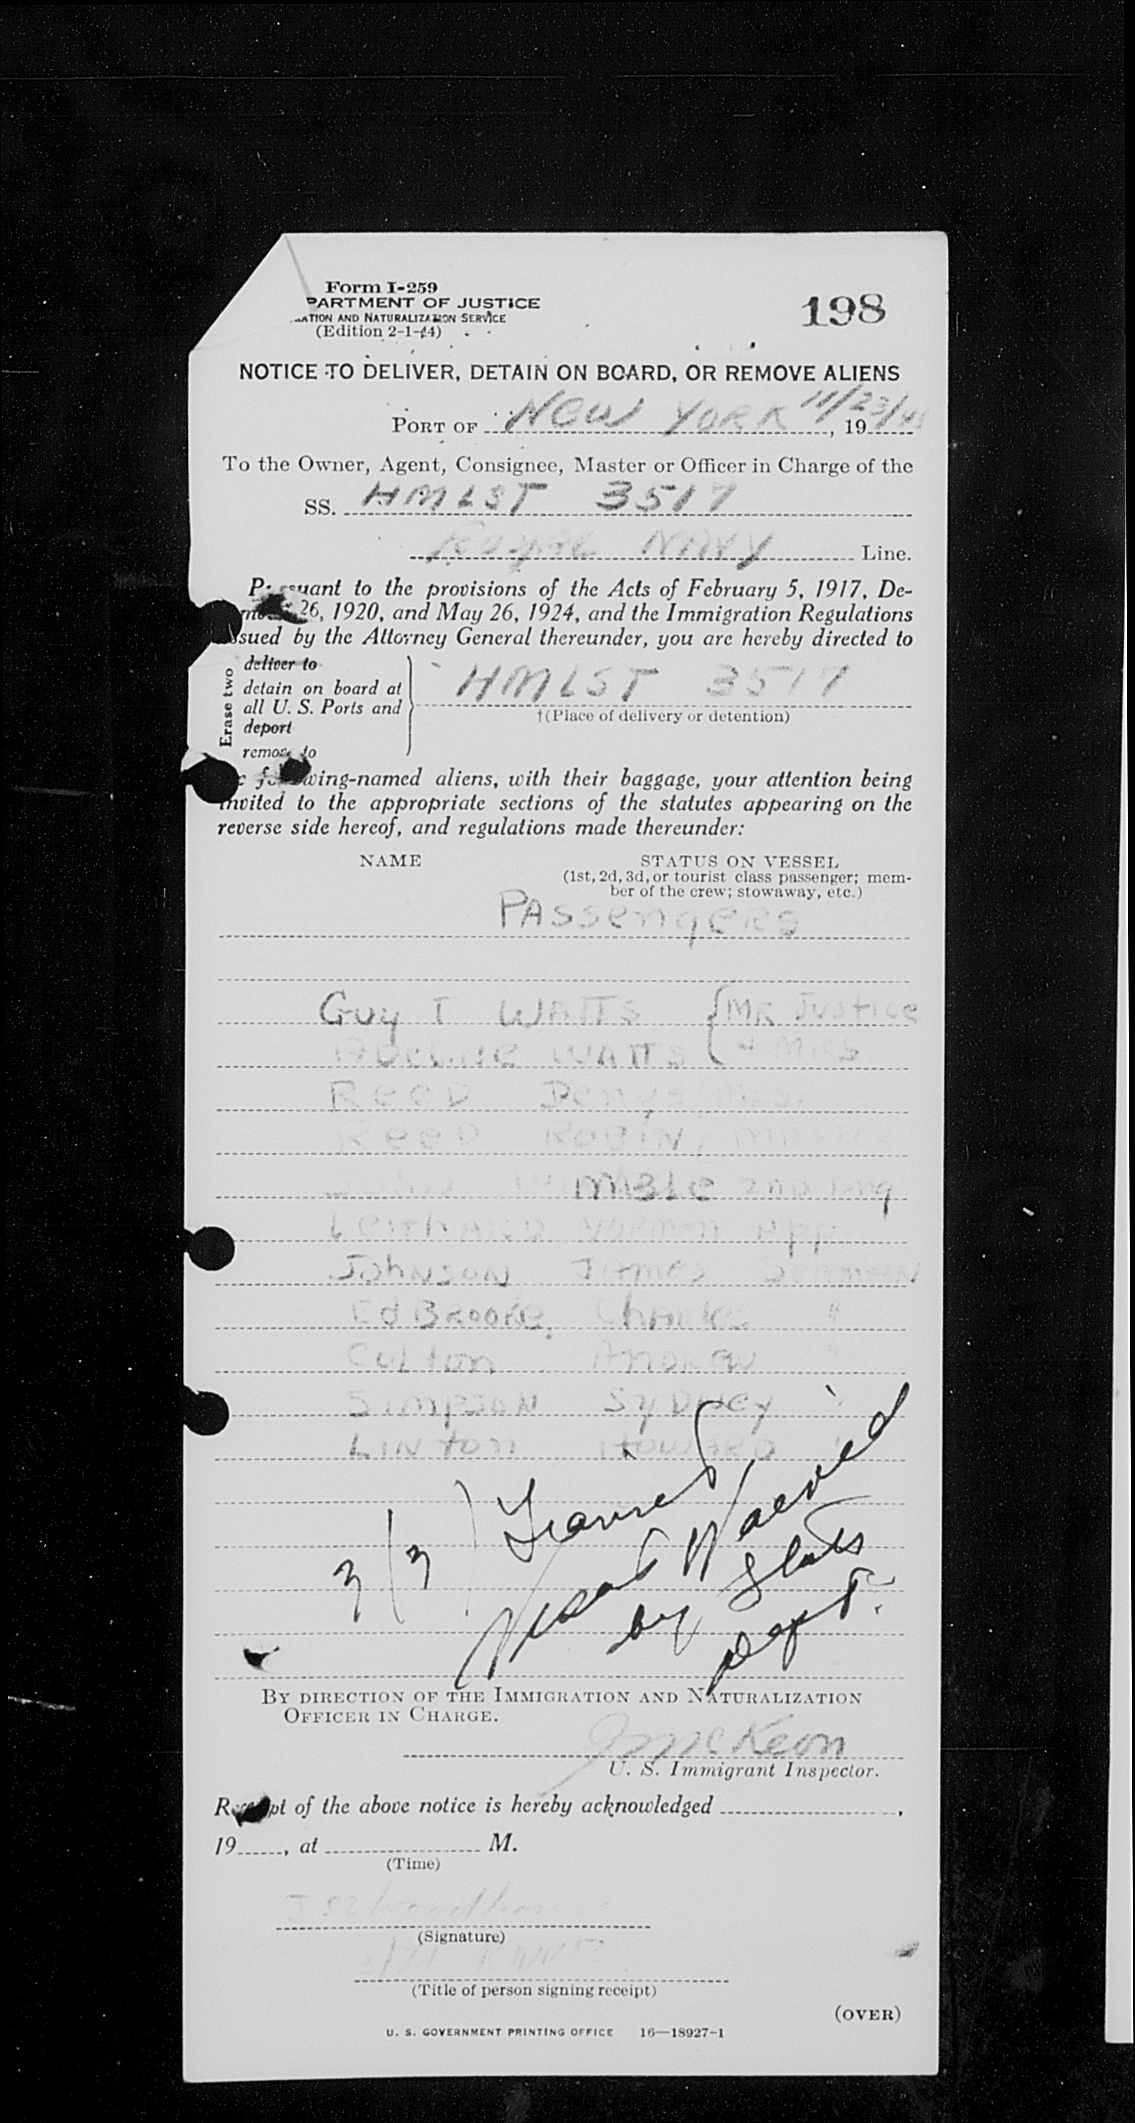 Form I-259
PARTMENT OF JUSTICE
ATION AND NATURALIZATION SERVICE
(Edition 2-1-44)
198
NOTICE TO DELIVER, DETAIN ON BOARD, OR REMOVE ALIENS
PORT OF NEW YORK 11/23/4 , 19
To the Owner, Agent, Consignee, Master or Officer in Charge of the
SS. HMLST 3517
ROYAL NAVY Line.
Pursuant to the provisions of the Acts of February 5, 1917, De-
26, 1920, and May 26, 1924, and the Immigration Regulations
issued by the Attorney General thereunder, you are hereby directed to
Erase two
deliver to
detain on board at
all U. S. Ports and
deport
remove to
HMLST 3517
†(Place of delivery or detention)
following-named aliens, with their baggage, your attention being
invited to the appropriate sections of the statutes appearing on the
reverse side hereof, and regulations made thereunder:
NAME STATUS ON VESSEL
(1st, 2d, 3d, or tourist class passenger; mem-
ber of the crew; stowaway, etc.)
PASSENGERS
Guy T WATTS { MR Justice
WATTS + MRS
REED Denys
REED ROBIN,
MALE
NORMAN App
JOHNSON JAMES
Ed BROOKE. Charles "
Colton ANDREW "
SIMPSON SYDNEY "
LINTON HOWARD "
3 (3) 
Visas Waived
by State
Dept.
BY DIRECTION OF THE IMMIGRATION AND NATURALIZATION
OFFICER IN CHARGE.
J McKeon
U. S. Immigrant Inspector.
Receipt of the above notice is hereby acknowledged ,
19 , at M.
(Time)
(Signature)
(Title of person signing receipt)
(OVER)
U. S. GOVERNMENT PRINTING OFFICE 16—18927-1